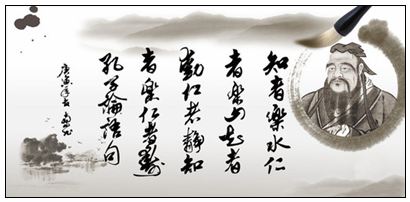 知者樂水仁
者樂山知者
動仁者靜知
者樂仁者壽
孔子論語句
庚寅年